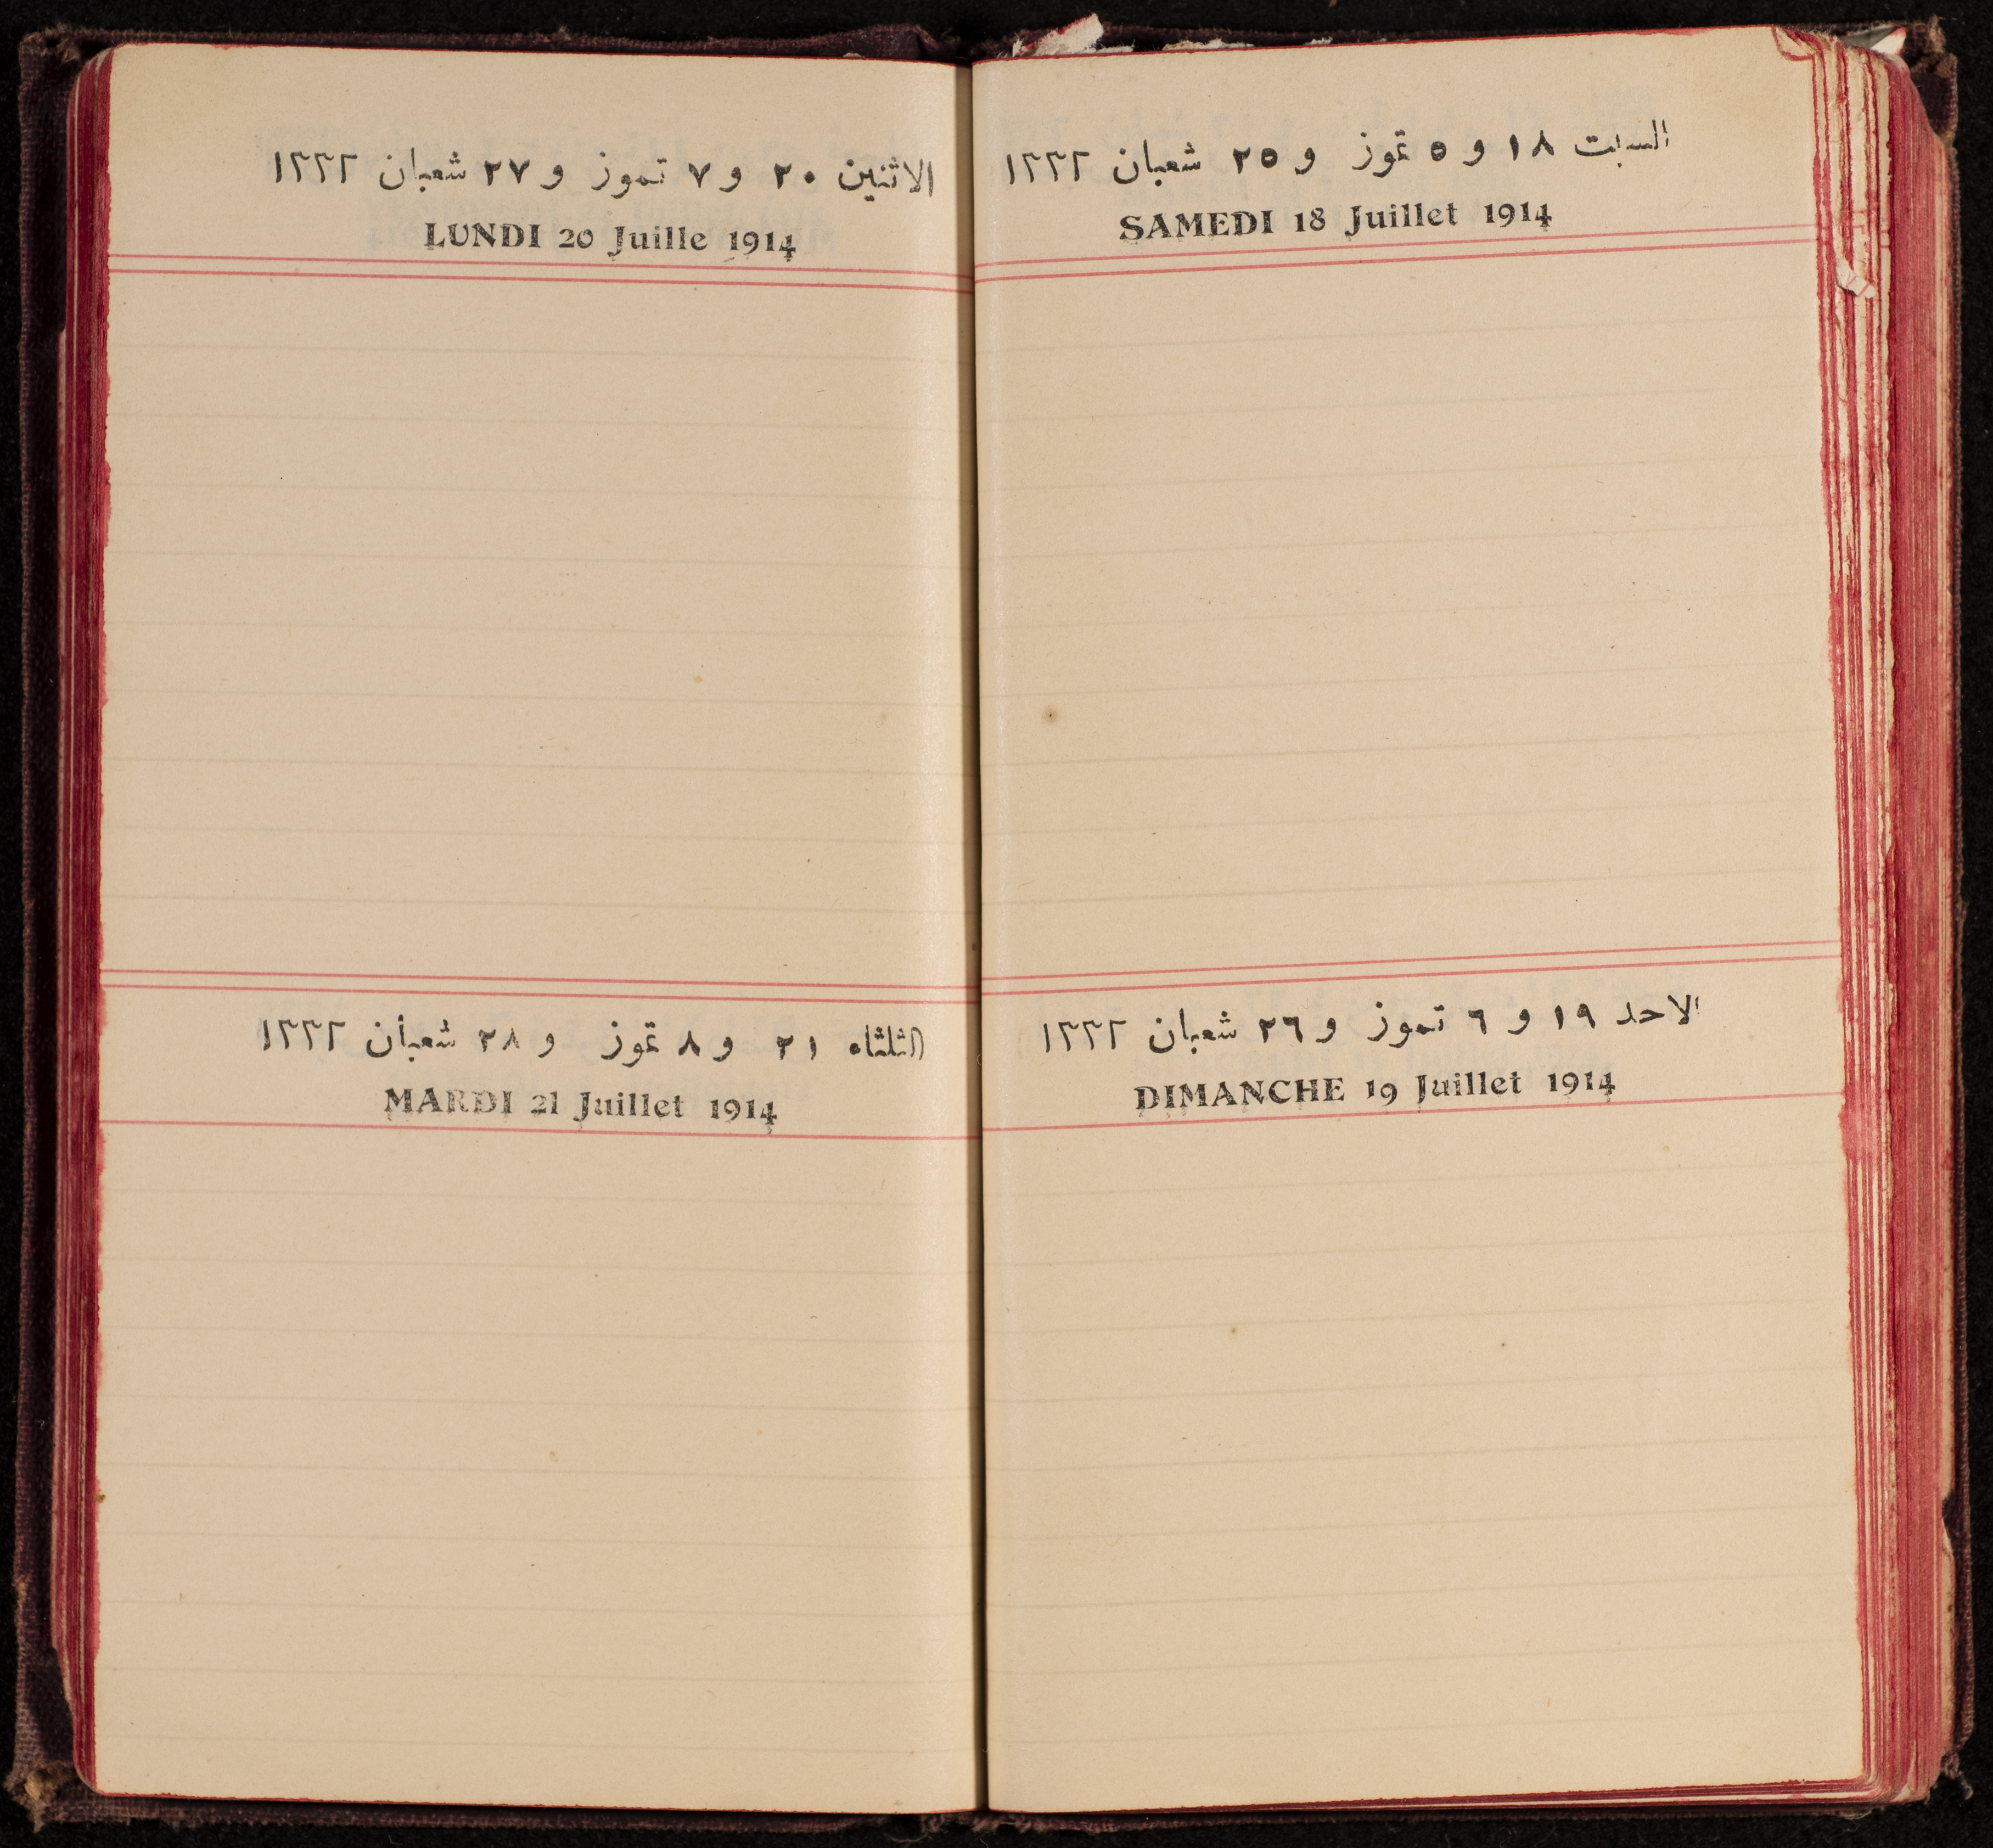 السبت ١٨ و ٥ تموز و ٢٥ شعبان ١٣٣٢
SAMEDI 18 Juillet 1914
الاحد ١٩ و ٦ تموز و ٢٦ شعبان ١٣٣٢
DIMANCHE 19 Juillet 1914
الاثنين ٢٠ و ٧ تموز و ٢٧ شعبان ١٣٣٢
LUNDI 20 Juille 1914
الثلثاء ٢١ و ٨ تموز و ٢٨ شعبان ١٣٣٢
MARDI 21 Juillet 1914